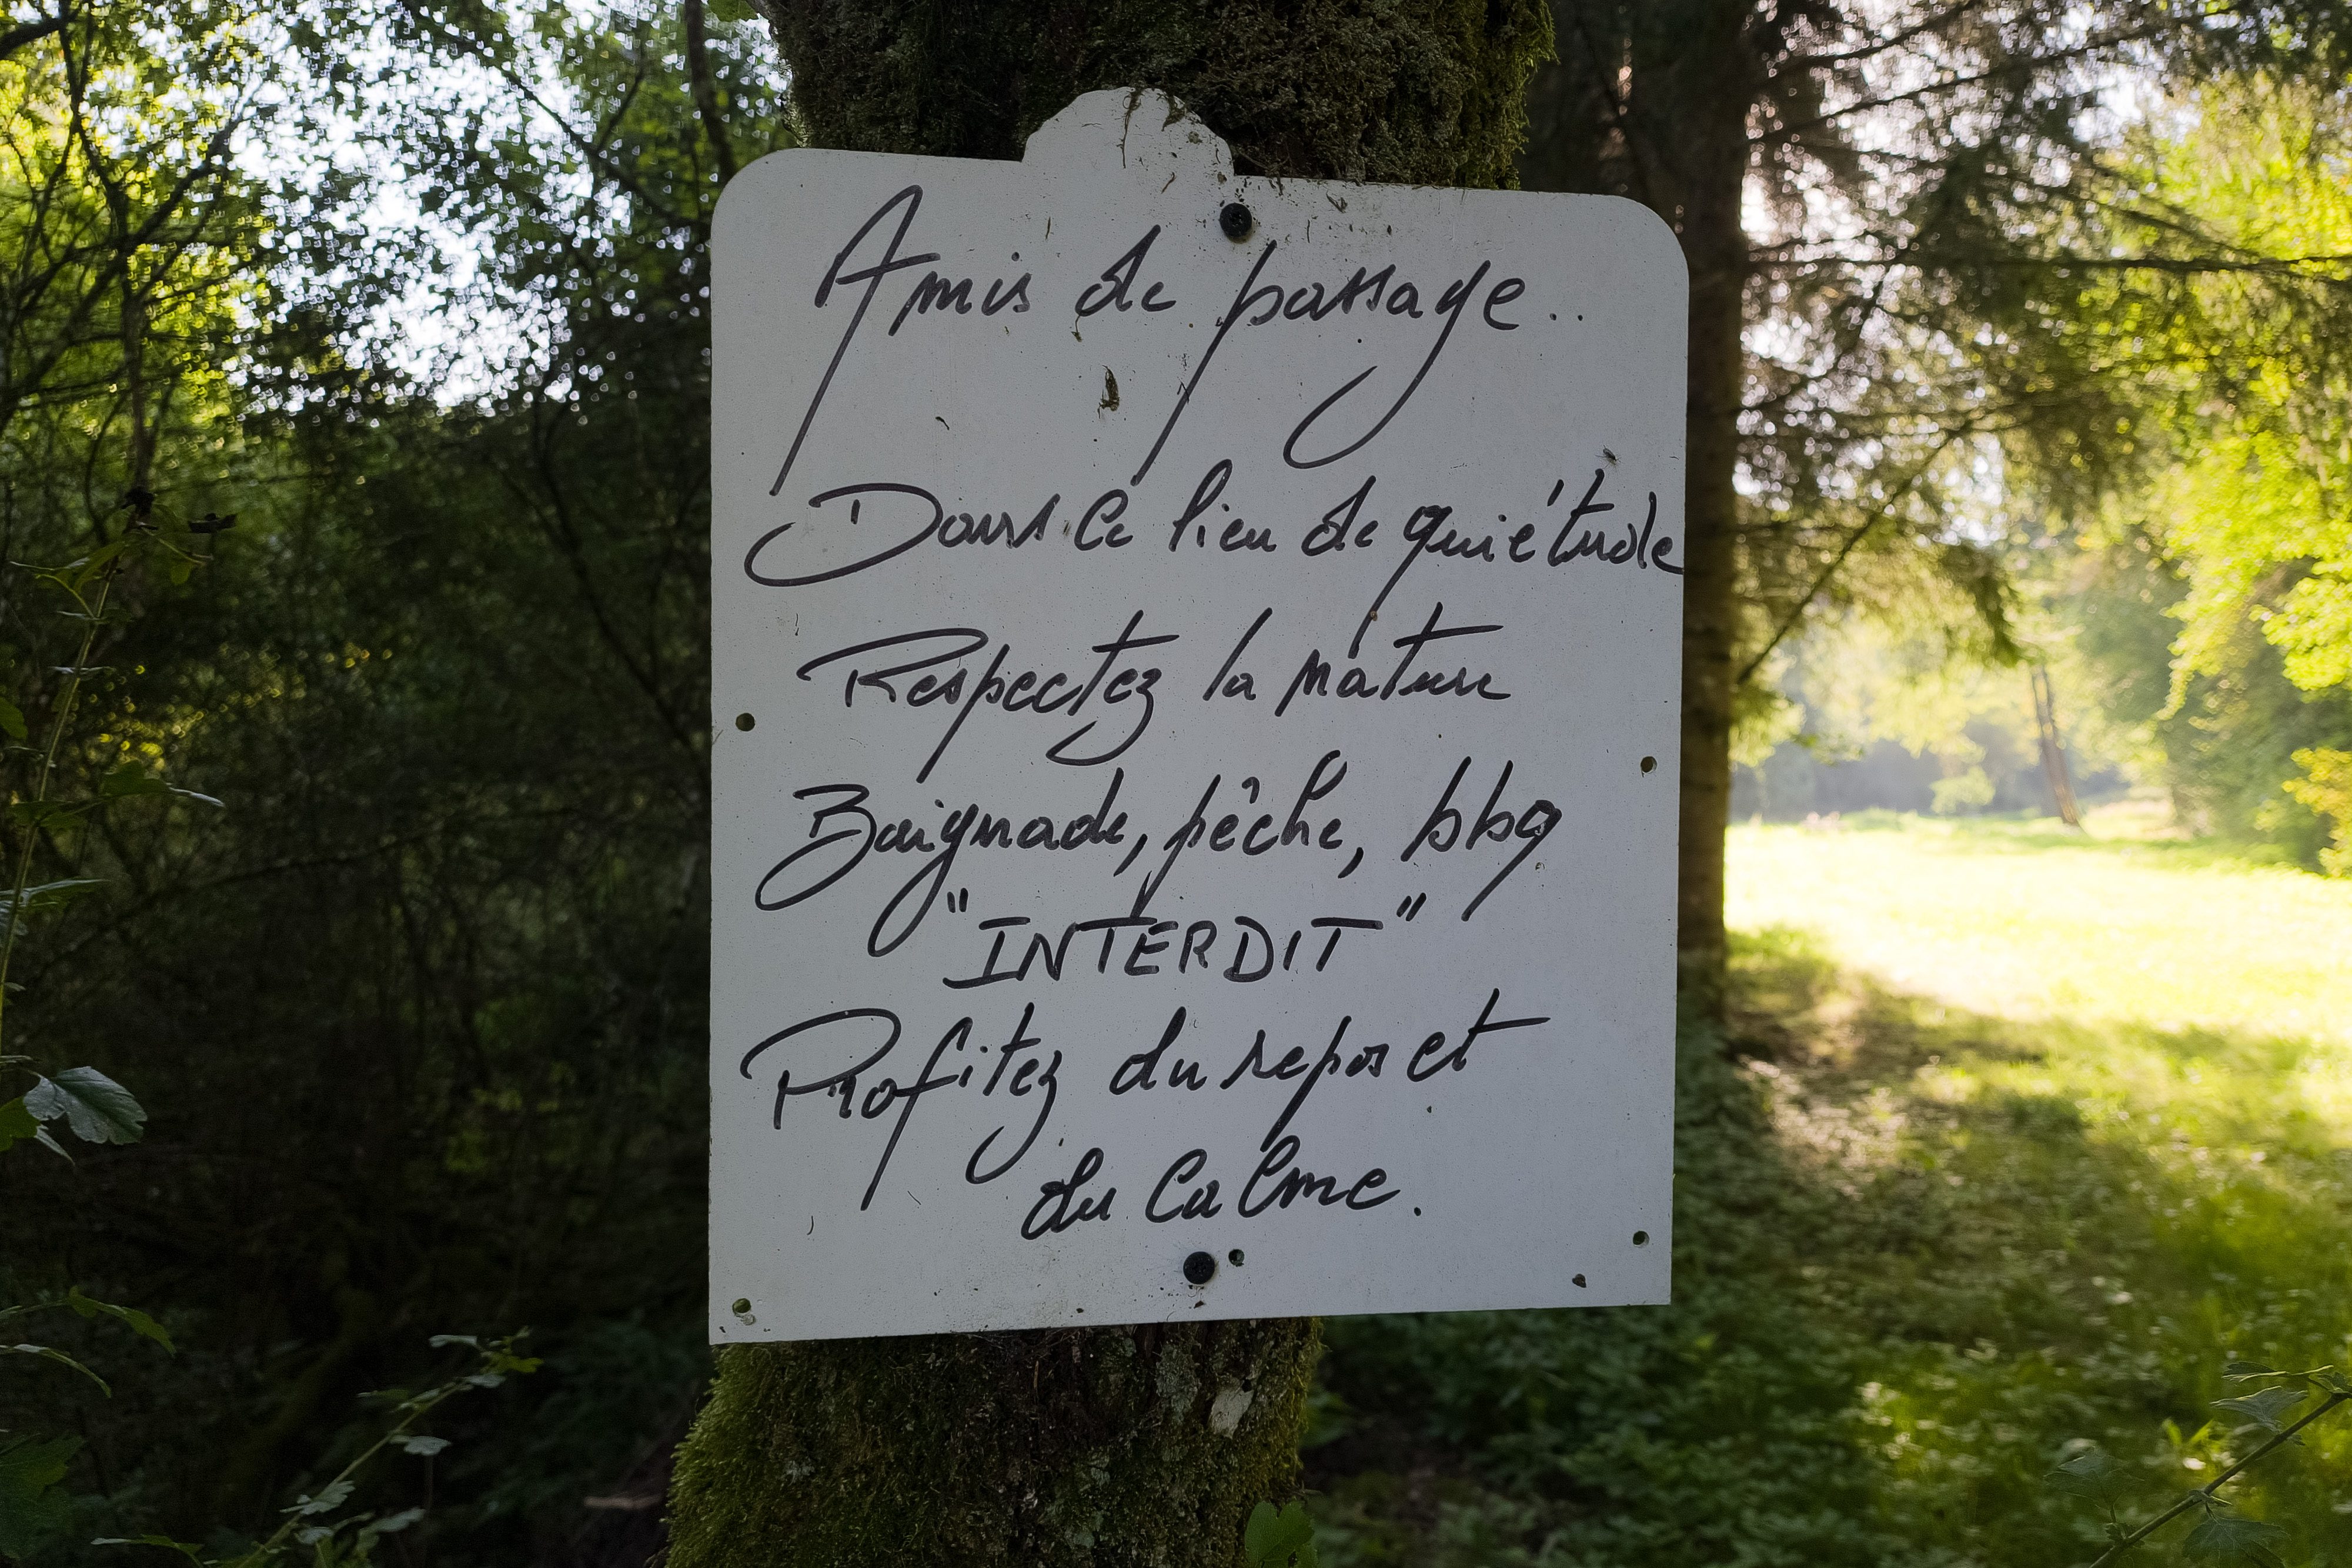 Amis de passage..
Dans ce lieu de quiétude
Respectez la nature
Baignade, pêche, bbq
"INTERDIT"
Profitez du repos et
du Calme.